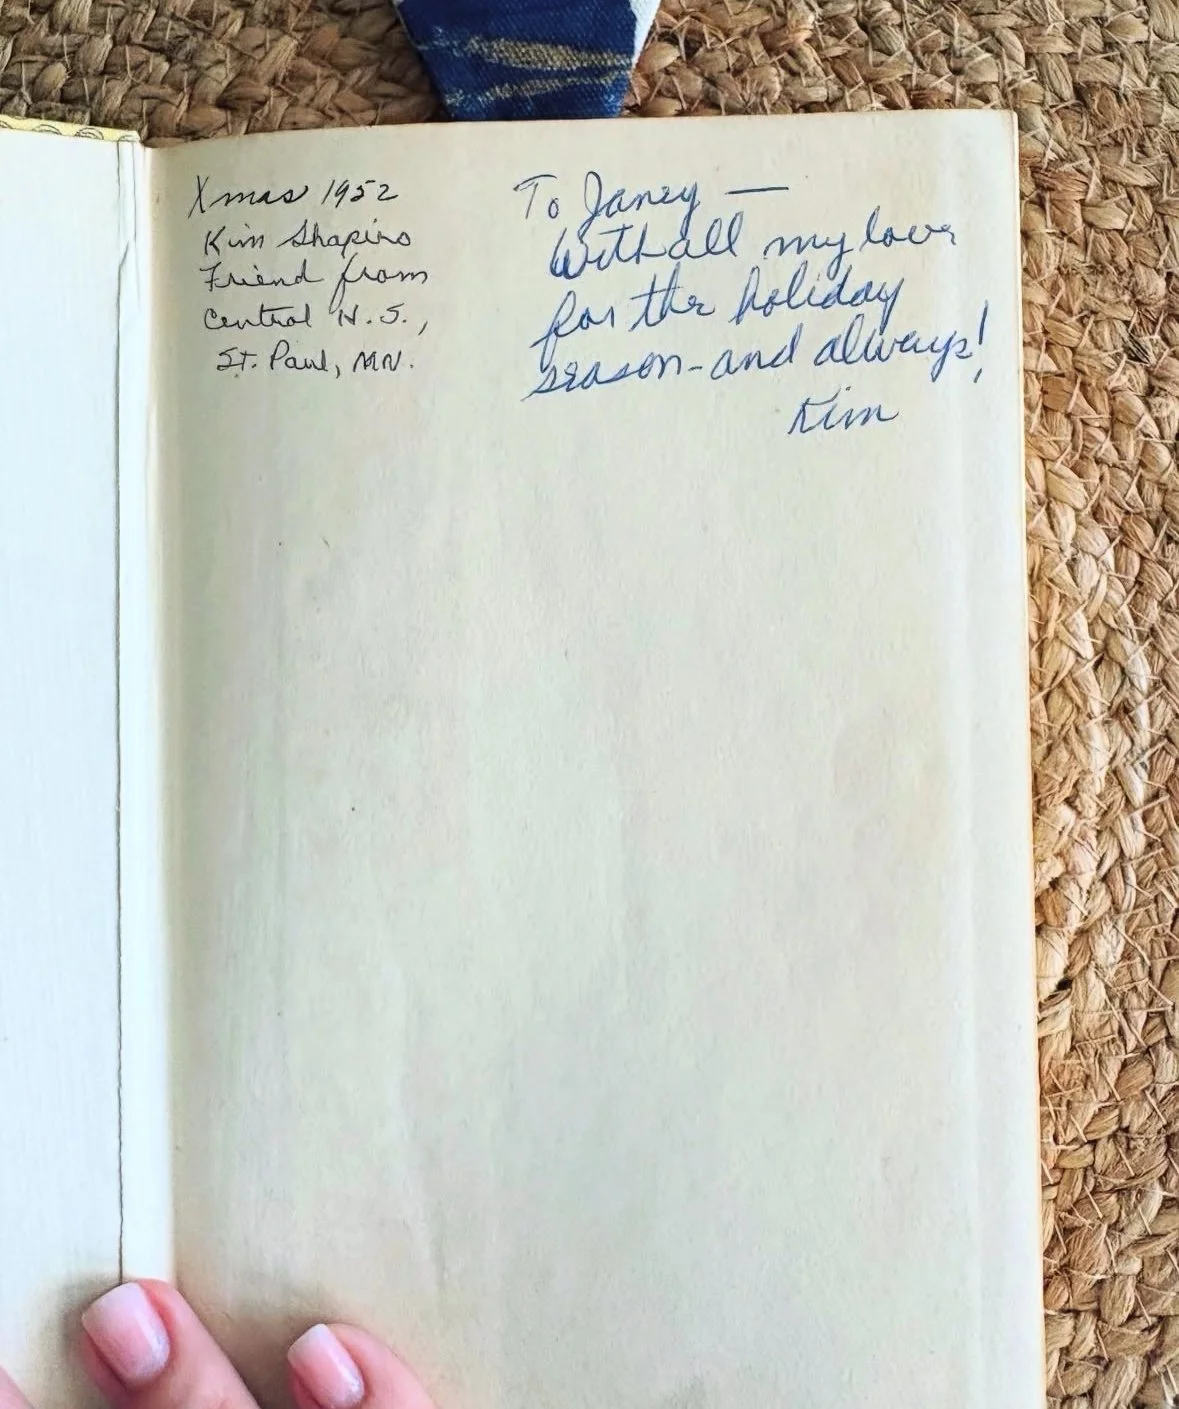 Xmas 1952
Kim Shapiro
Friend from
Central H.S.,
St. Paul, MN.
To Janey —
With all my love
for the holiday
season - and always!
Kim